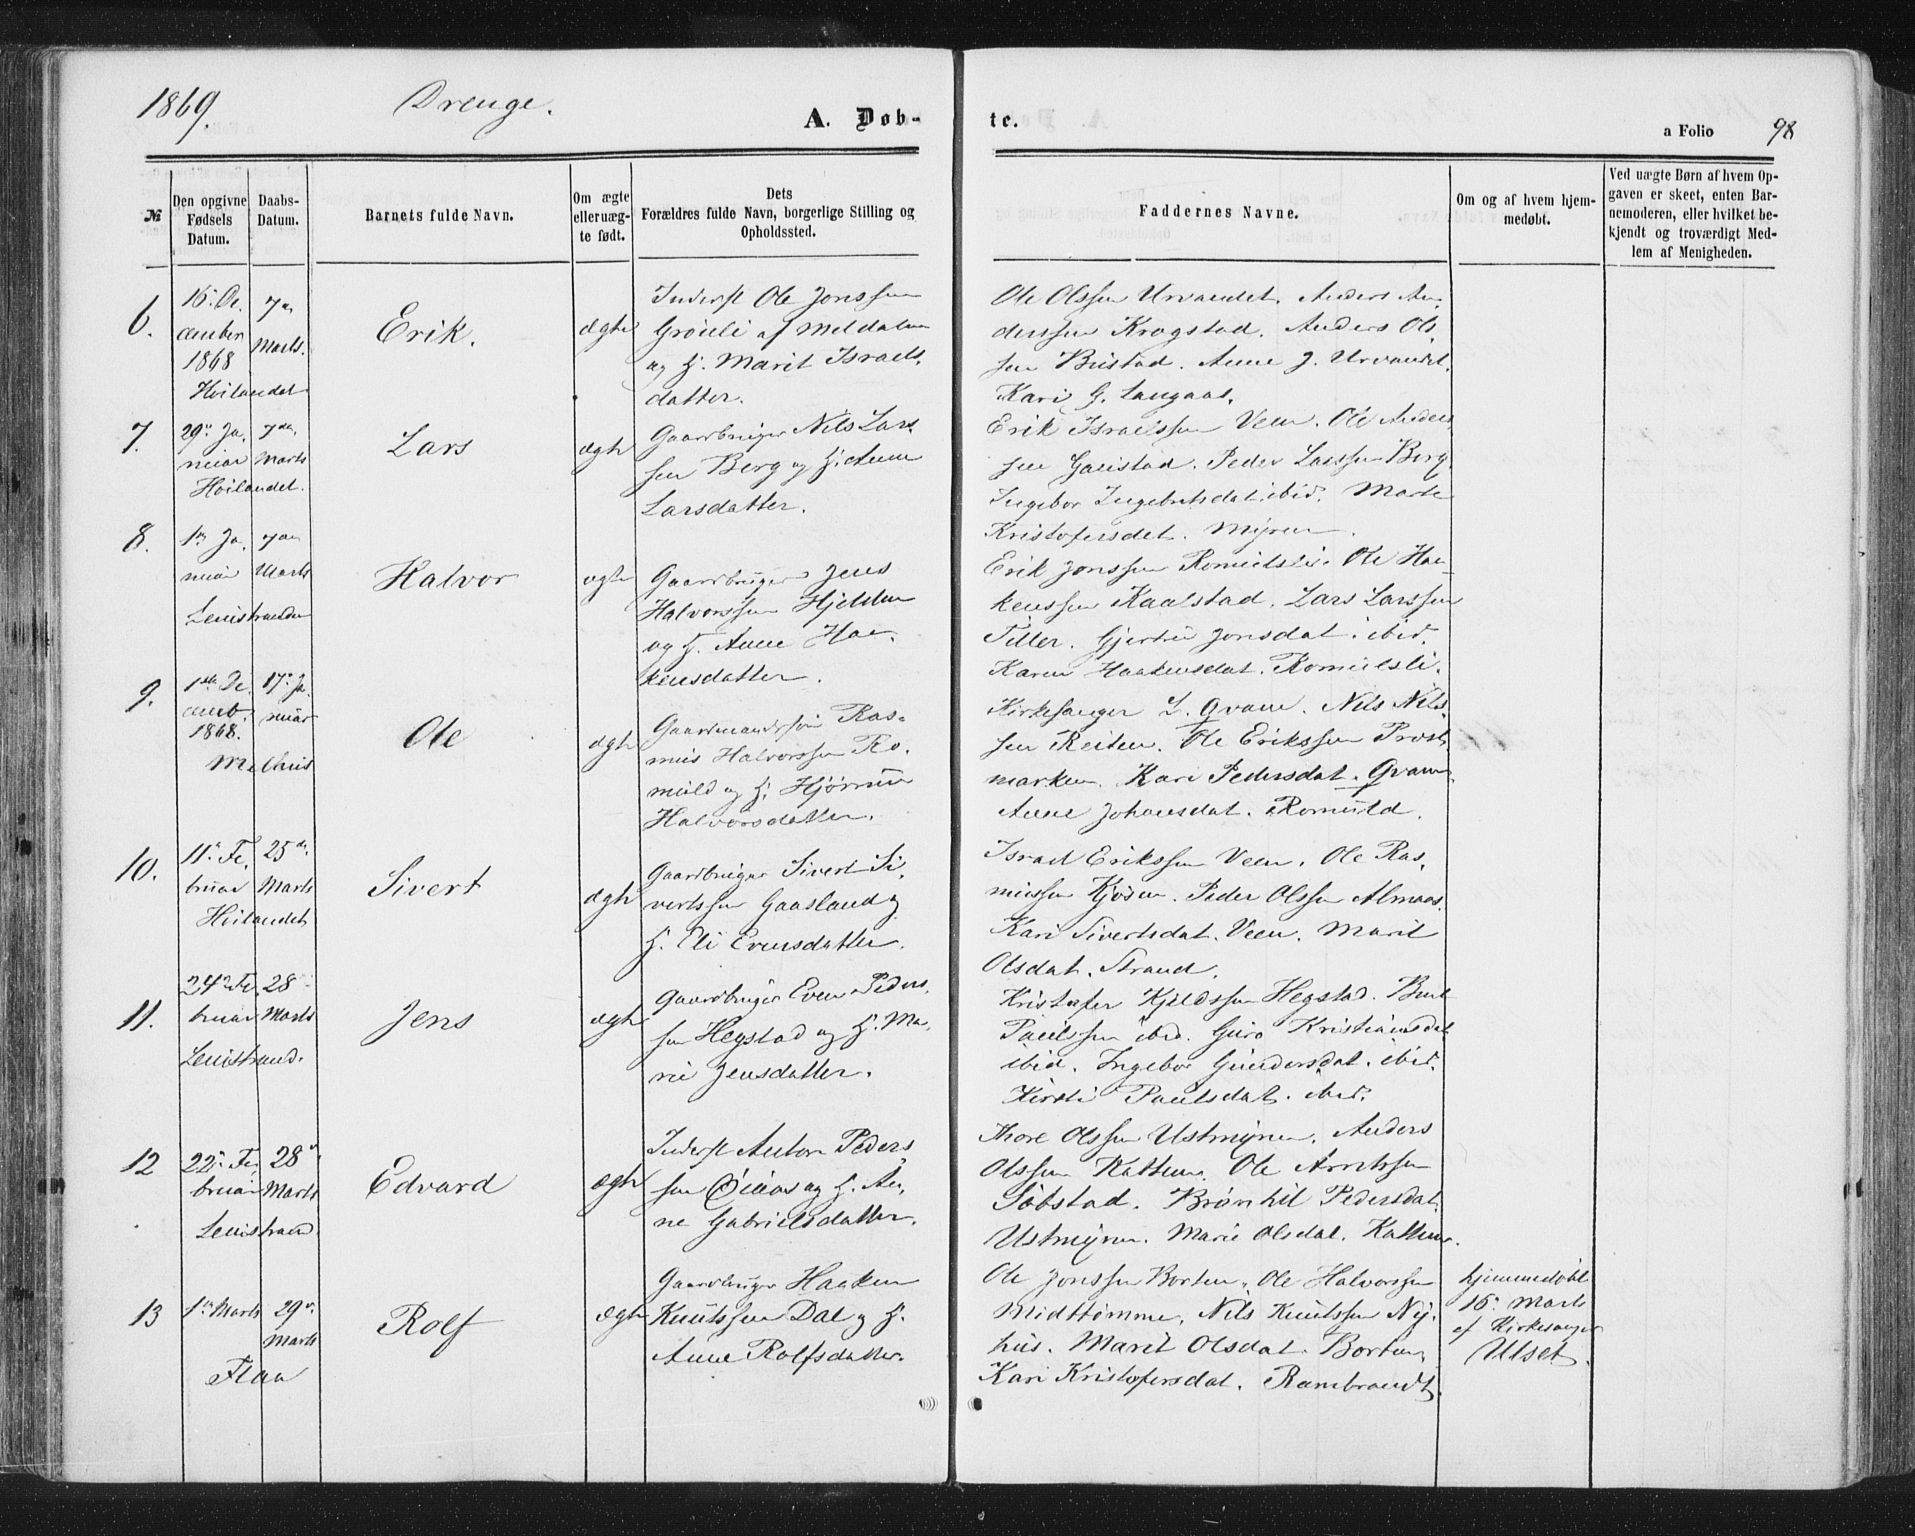 1869.
Drenge.
A. Døb-
te.
a Folio 98
№
Den opgivne Fødsels Datum.
Daabs-Datum.
Barnets fulde Navn.
Om ægte eller uæg-te født.
Dets Forældres fulde Navn, borgerlige Stilling og Opholdssted.
Faddernes Navne.
Om og af hvem hjem-medøbt.
Ved uægte Børn af hvem Op-gaven er skeet, enten Bar-nemoderen, eller hvilket be-kjendt og troværdigt Med-lem af Menigheden.
6.
16. De-
cember
1868
Høilandet
7de
Marts.
Erik.
ægte
Inderst Ole Jonssen
Grönli af Meldalen
og H. Marit Israels-
datter.
Ole Olssen Urvandet. Anders An-
derssen Krogstad. Anders Ols-
sen Bustad. Anne J. Urvandet.
Kari G. Langaas.
7.
29. Ja-
nuar
Høilandet.
7de
Marts
Lars
ægte
Gaardbruger Nils Lars-
sen Berg og H. Anne
Larsdatter.
Erik Israelssen Veen. Ole Anders-
sen Gaustad. Peder Larssen Berg.
Ingebor Ingebritsdat. ibid. Marte
Kristofersdat. Myren.
8.
1ste Ja-
nuar
Lenistranden
7de
Marts
Halvor
ægte
Gaardbruger Jens
Halvorssen Hjelden
og H. Anne Haa-
kensdatter.
Erik Jonssen Romulsli. Ole Haa-
kenssen Kaalstad. Lars Larssen
Tiller. Gjertru Jonsdat. ibid.
Karen Haakensdat. Romulsli.
9.
1ste De-
cemb.
1868.
Melhus
17. Ja-
nuar
Ole
ægte
Gaardmandssøn Ras-
mus Halvorssen Ro-
muld og H. Hjørrun
Halvorsdatter.
Kirkesanger L. Qvam. Nils Nils-
sen Reiten. Ole Erikssen Prost-
marken. Kari Pedersdat. Qvam.
Anne Johansdat. Romuld.
10.
11. Fe-
bruar
Høilandet
25de
Marts
Sivert
ægte
Gaardbruger Sivert Si-
vertssen Gaasland og
H. Eli Evensdatter.
Israel Erikssen Veen. Ole Ras-
mussen Kjøsen. Peder Olssen Almaas.
Kari Sivertsdat. Veen. Marit
Olsdat. Strand.
11.
24de Fe-
bruar
Lenistrand.
28
Marts
Jens
ægte
Gaardbruger Even Peders-
sen Hegstad og H. Ma-
rie Jensdatter.
Kristofer Kjeldssen Hegstad. Berit
Paulssen ibid. Guro Kristiansdat
ibid. Ingebor Gundersdat. ibid.
Kirsti Paulsdat. ibid.
12
22. Fe-
bruar
Lenistrand.
28
Marts
Edvard
ægte
Inderst Anton Peders-
sen Øiaas og H. An-
ne Gabrielsdatter.
Thore Olssen Ustmyren. Anders
Olssen Kattem. Ole Arntssen
Söbstad. Brønhil Pedersdat.
Ustmyren. Marie Olsdat. Kattem.
13
1ste Marts
Flaa
29de
Marts
Rolf
ægte
Gaardbruger Haaken
Knutssen Dal og H.
Anne Rolfsdatter.
Ole Jonssen Borten. Ole Halvorssen
Midttømme. Nils Knutssen Ny-
hus. Marit Olsdat. Borten.
Kari Kristofersdat. Rambraudt.
hjemmedøbt
16. Marts
af Kirkesanger
Ulset.